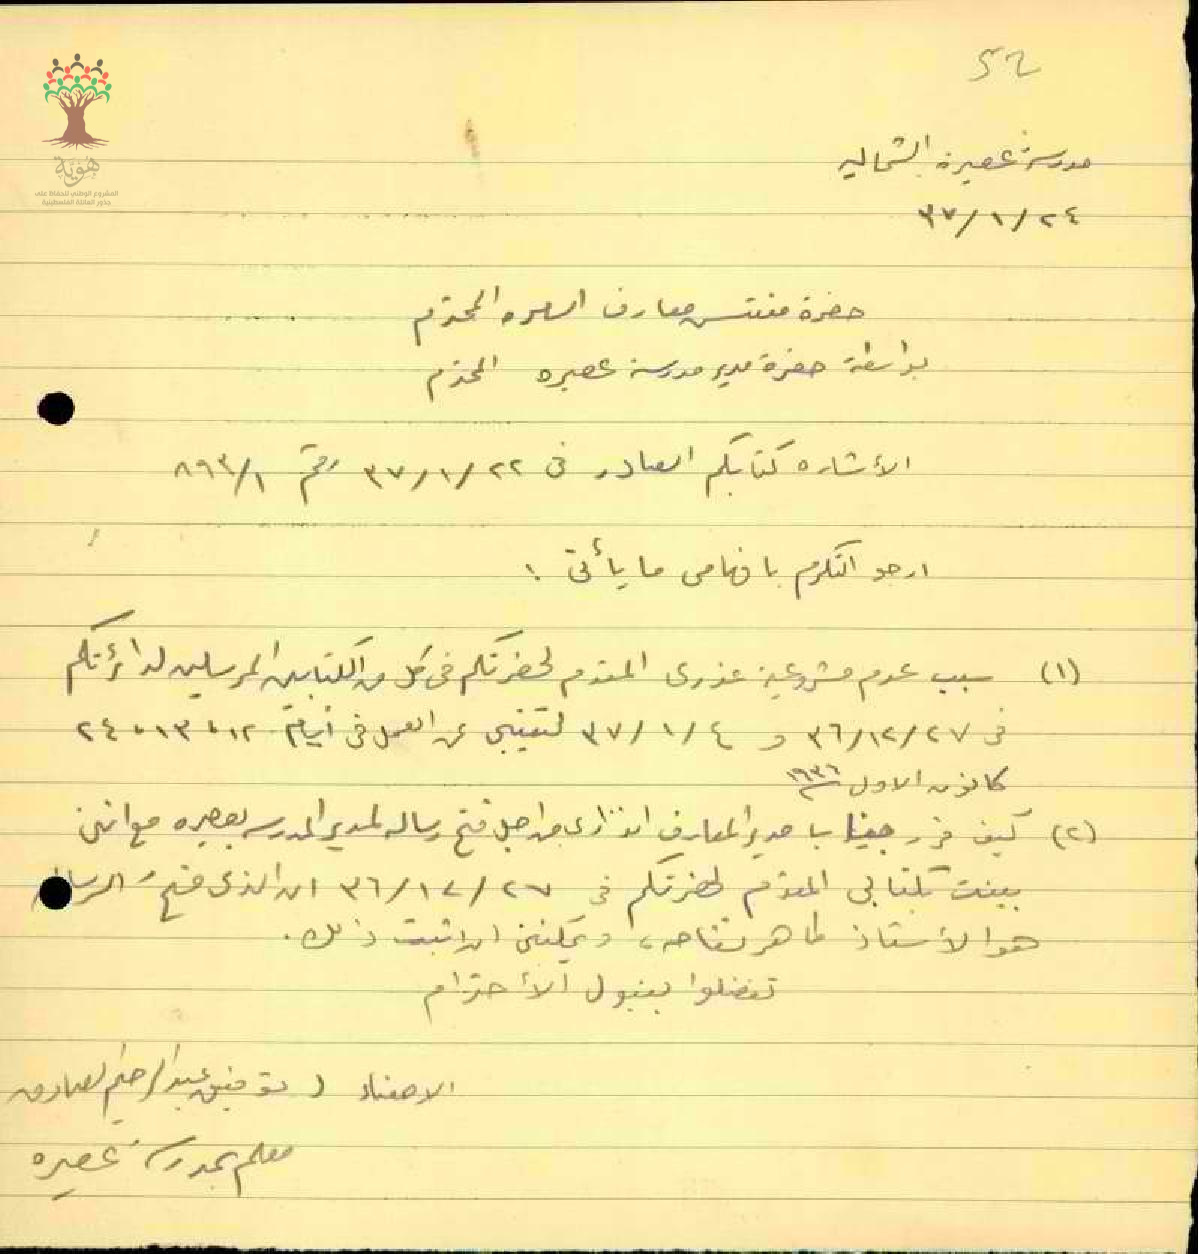 ٥٢
هُوِيَّة
المشروع الوطني للحفاظ على
جذور العائلة الفلسطينية
مدرسة عصيرة الشماليه
٣٧/١/٢٤
حضرة مفتش معارف المحترم
بواسطة حضرة مدير مدرسة عصيره المحترم
الأشاره كتابكم الصادر فى ٣٧/١/٢٢ رقم ٨٩٣/١
ارجو التكرم بافهامى ما يأتى :
(١) سبب عدم مشروعية عذرى المقدم لحضرتكم فى كل من الكتابين المرسلين لدائرتكم
فى ٣٦/١٢/٢٧ و ٣٧/١/٤ لتغيبى عن العمل فى أيام ١٢، ١٣، ٢٤
كانون الاول ١٩٣٦
(٢) كيف قرر جناب مدير المعارف انذارى من اجل فتح رساله لمدير المدرسه بعصيره مع اننى
بينت بكتابى المقدم لحضرتكم فى ٣٦/١٢/٢٧ ان الذى فتح الرساله
هو الأستاذ طاهر تفاحه، ويمكننى ان اثبت ذلك.
تفضلوا بقبول الأحترام
الامضاء ( توفيق عبد الرحيم الصادق
معلم بمدرسة عصيره